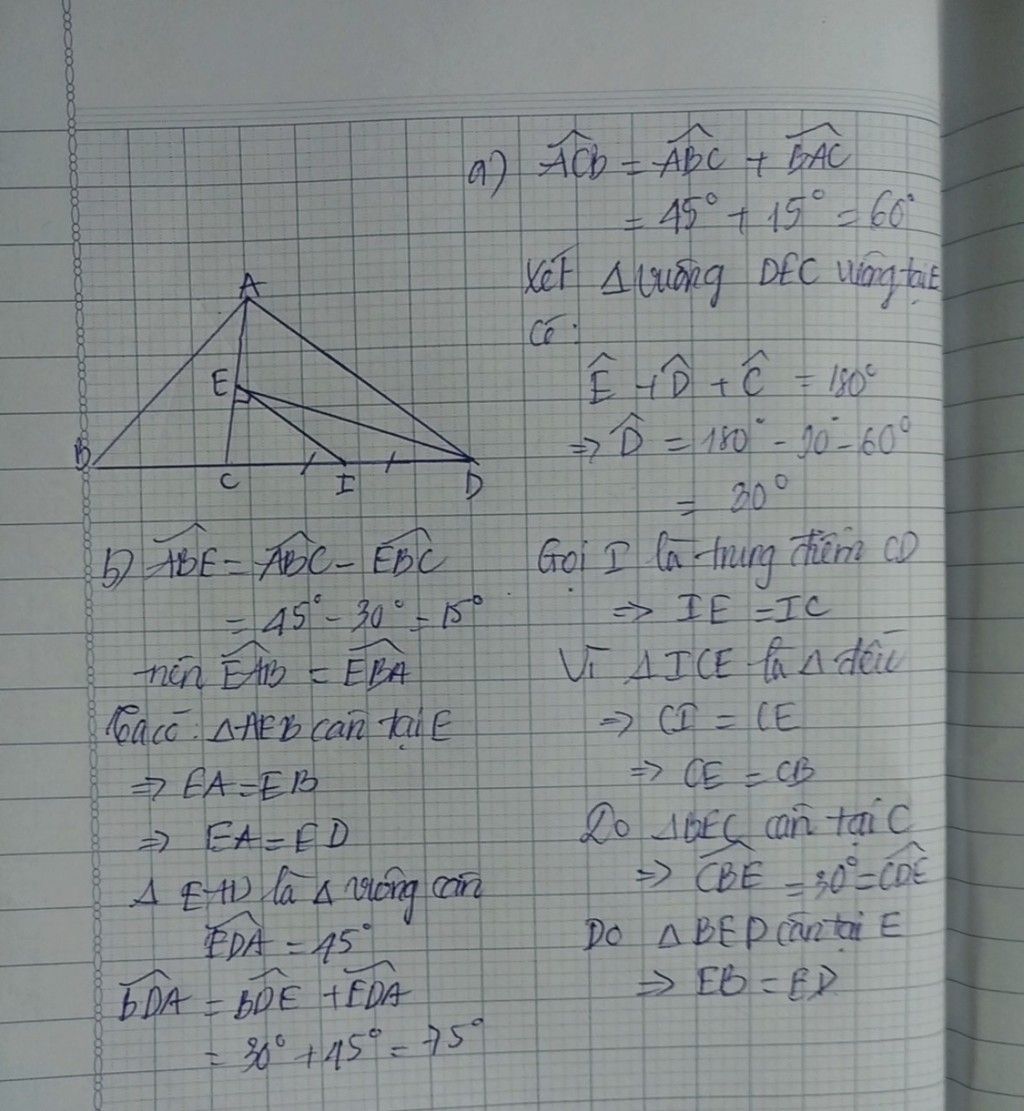 a) ACD = ABC + BAC
= 45° + 15° = 60°
Xét Δ vuông DEC vuông tại E
có:
Ê + D̂ + Ĉ = 180°
=> D̂ = 180° - 90° - 60°
= 30°
Gọi I là trung điểm CD
=> IE = IC
Vì ΔICE là Δ đều
=> CI = CE
=> CE = CB
Do ΔBEC cân tại C
=> CBE = 30° = CDE
Do ΔBED cân tại E
=> EB = ED
A
E
B
C
I
D
b) ABE = ABC - EBC
= 45° - 30° = 15°
nên EAB = EBA
Ta có: ΔAEB cân tại E
=> EA = EB
=> EA = ED
Δ EAD là Δ vuông cân
EDA = 45°
BDA = BDE + EDA
= 30° + 45° = 75°